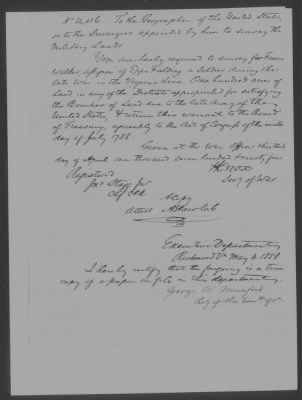 No 12,056. To the Geographer of the United States
or to the Surveyors appointed by him to survey the
Military Lands
You are hereby required to survey for Francis
Walker, assignee of Eppa Fielding a Soldier during the
late War in the Virginia Line One hundred acres of
Land in any of the Districts appropriated for satisfying
the Bounties of Land due to the late Army of the
United States, & return this warrant to the Board
of Treasury, agreeably to the Act of Congress of the ninth
day of July 1788.
Given at the War Office this third
day of April one thousand seven hundred & ninety four
Registered
Jno Stagg Jur
Chf Clk
H Knox
Secy of War
A Copy
Attest
Executive Department
Richmond Va May 3. 1858
I hereby certify that the foregoing is a true
copy of a paper on file in this department.
George W. Munford
Secy of the Comth of Va.